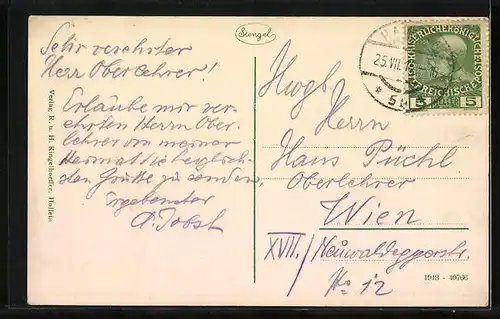 Stengel
Sehr verehrter
Herr Oberlehrer!
Erlaube mir ver-
ehrten Herrn Ober-
lehrer von meiner
Heimat die herzlich-
sten Grüße zu senden,
Ergebenster
A. Jobst
Verlag R. u. H. Kingelhoeffer, Hallein.
25.VII.
* 5
KAISERLICHE KÖNIGLICHE
ÖSTERREICHISCHE
5 5
Hans Püchl
Herrn
Oberlehrer
Wien
XVII./ Neuwaldeggerstr.
No 12
1913 - 40766